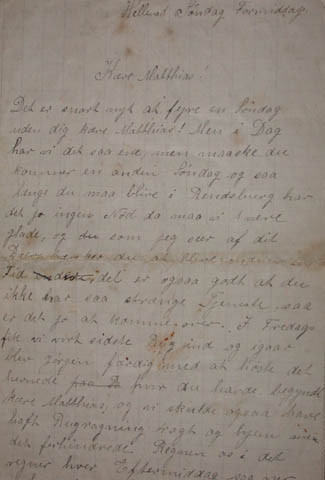 Hellevad Søndag Formiddag.
Kære Matthias!
Det er snart nyt at fyre en Søndag
uden dig kære Matthias! Men i Dag
har vi det saa ene, men maaske du
kommer en anden Søndag og saa
længe du maa blive i Rendsburg har
det jo ingen Nød da maa vi være
glade, og du som jeg seer af dit
du at
Tid det er ogsaa godt at du
ikke har saa strænge Tjeneste saa
er det jo at komme over. I Fredags
fik vi vort sidste ind og igaar
blev Jørgen færdig med at høste det
hvor du havde begyndt
kære Matthias, og vi skulde ogsaa have
haft Rugvagning vagt og byen
det forhindrede Regnen os i det
regner hver Eftermiddag saa